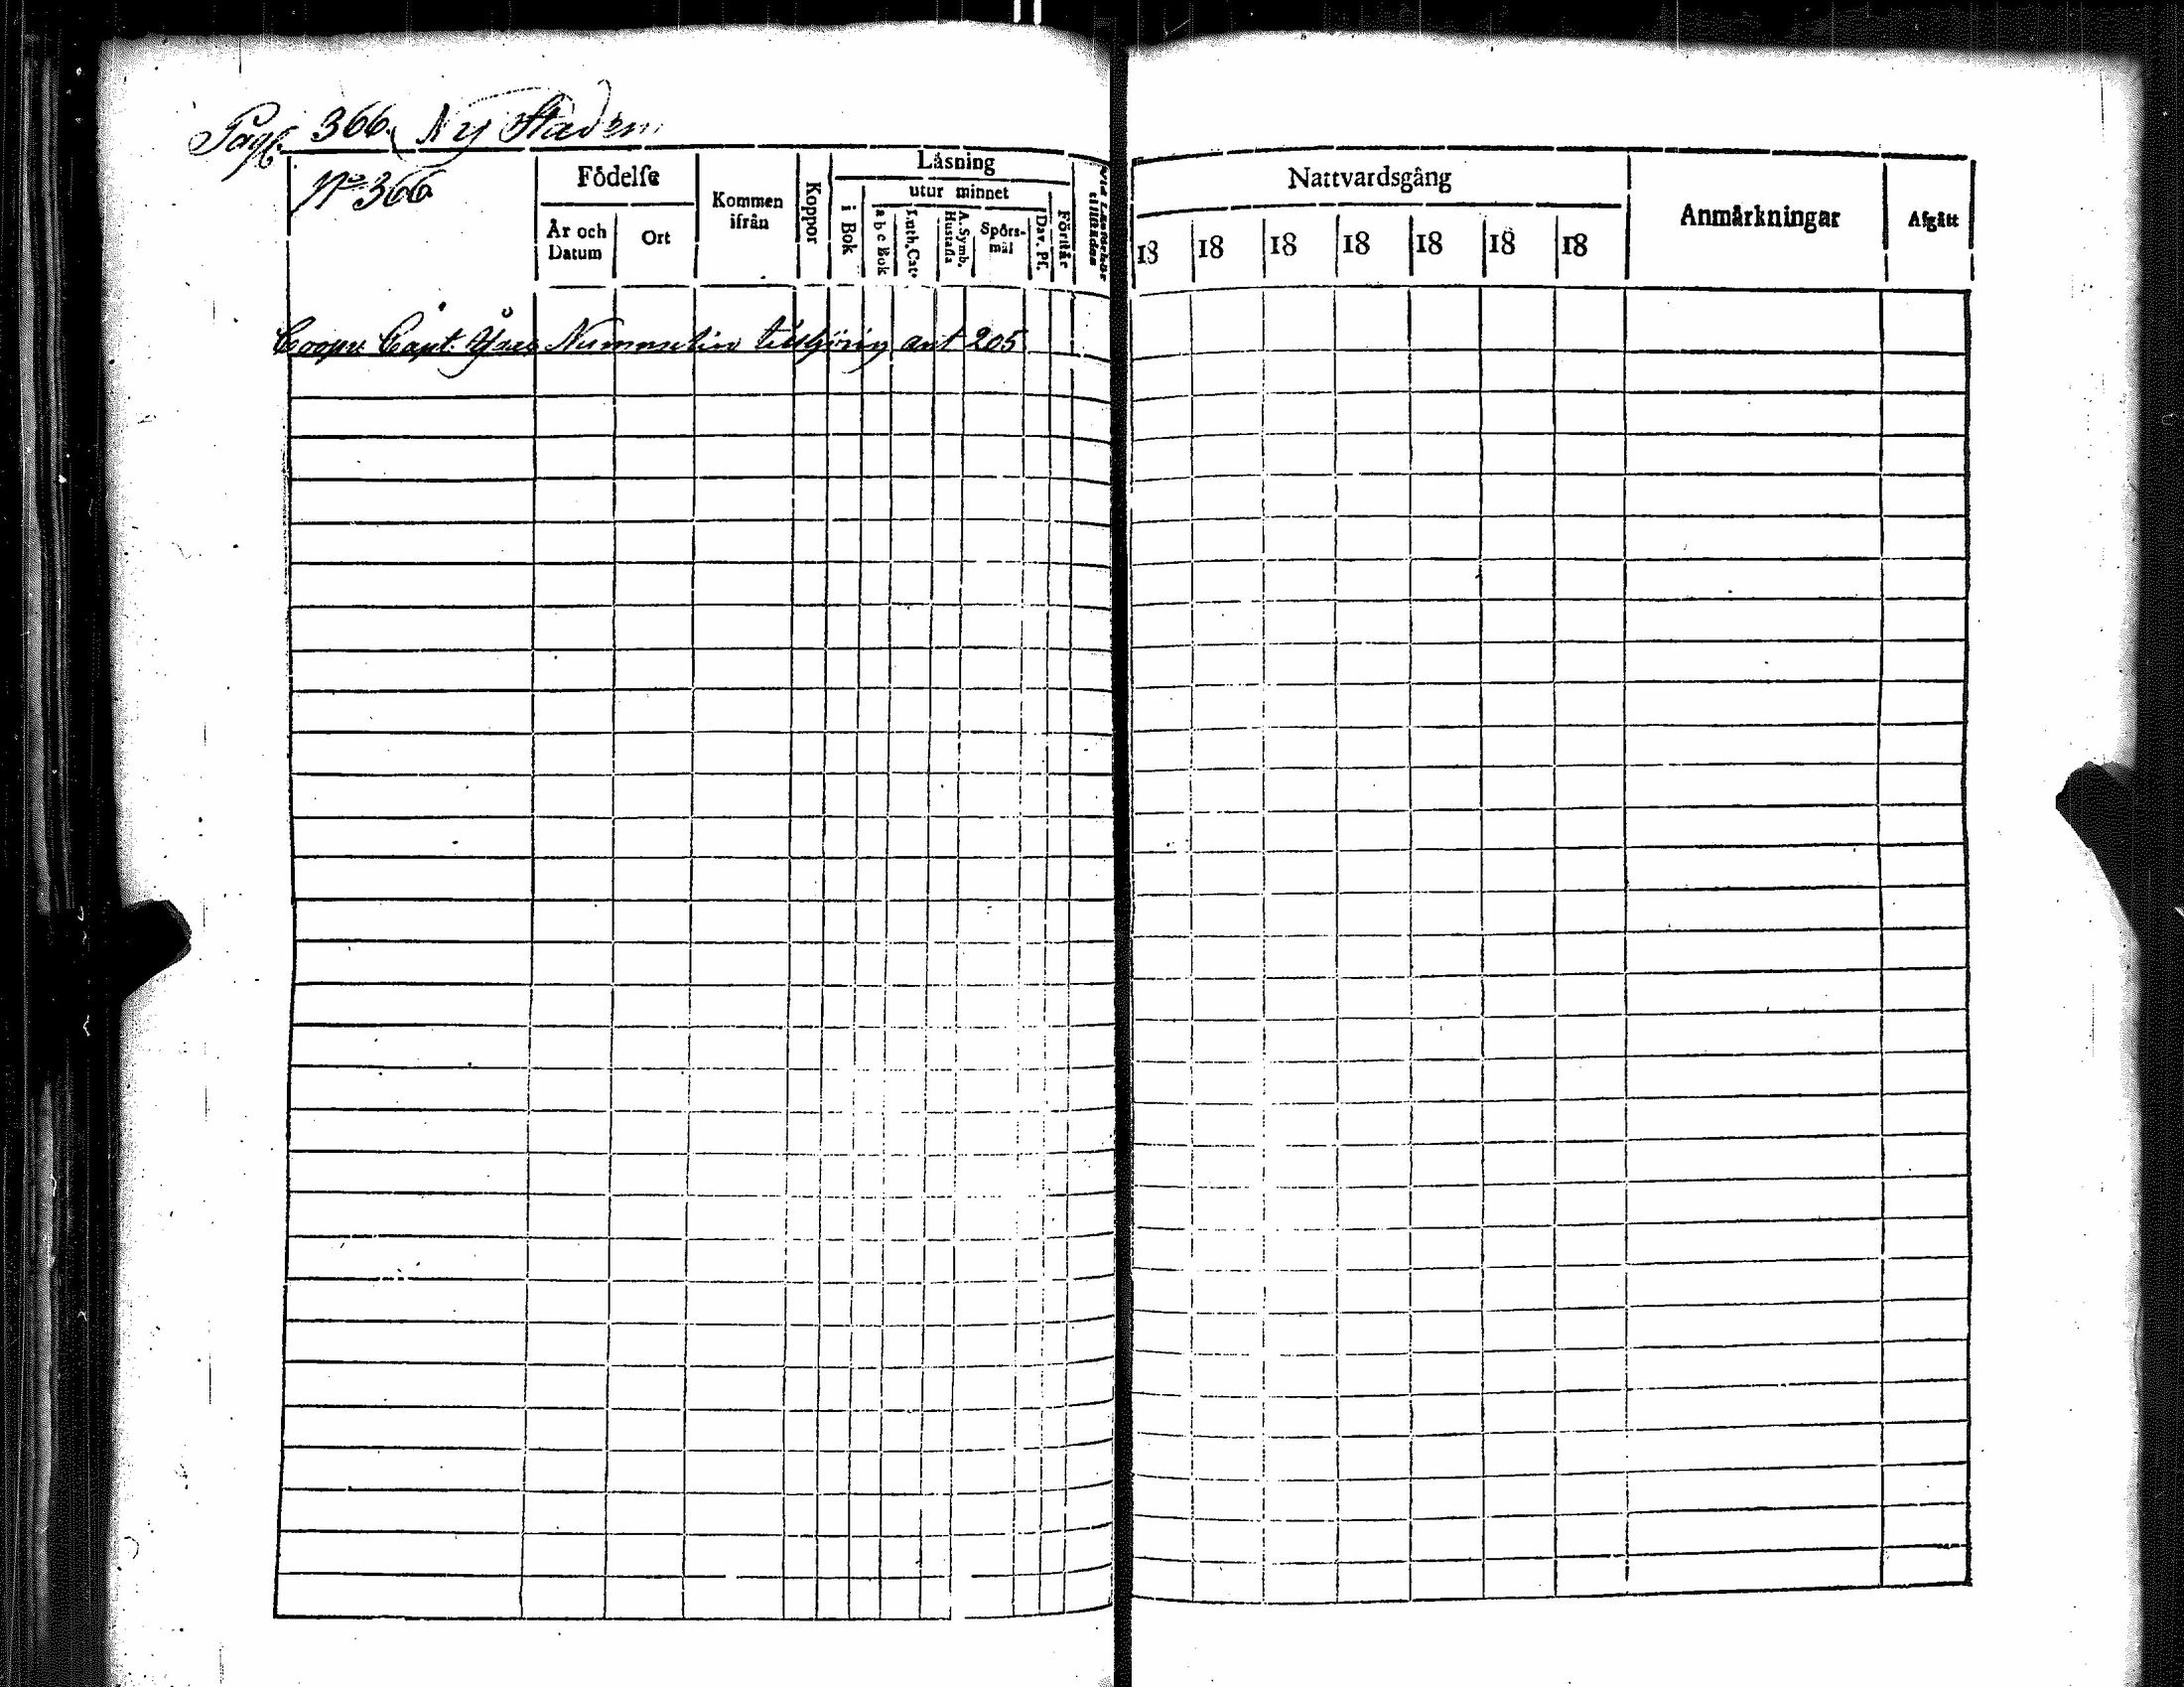 Pag. 366. Ny Staden
No 366
Födelse
År och Datum
Ort
Kommen ifrån
Koppor
Låsning
i Bok
utur minnet
a b c Bok
Luth. Cat.
A. Symb. Hustafla
Spörs-mål
Dav. Ps.
Förstår
Nattvardsgång
18 18 18 18 18 18 18
Anmårkningar
Afgått
Capt. Nummelin tillhörig ant 205